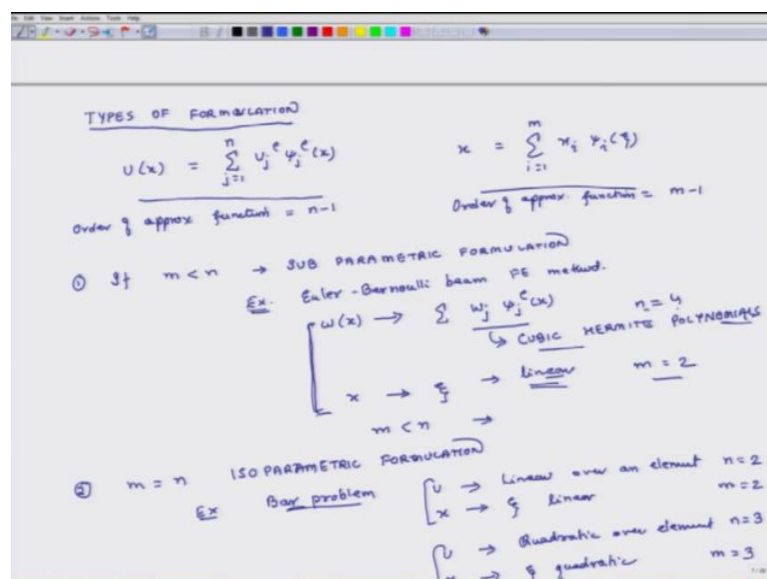 TYPES OF FORMULATION
U(x) = Σ_{j=1}^{n} U_j^e ψ_j^e(x)
x = Σ_{i=1}^{m} x_i ψ_i(ξ)
Order of approx function = n-1
Order of approx. function = m-1
① If m < n → SUB PARAMETRIC FORMULATION
Ex. Euler-Bernoulli beam FE method.
w(x) → Σ w_j ψ_j^e(x) n = 4
↳ CUBIC HERMITE POLYNOMIALS
x → ξ → linear m = 2
m < n →
② m = n ISO PARAMETRIC FORMULATION
Ex Bar problem
U → Linear over an element n=2
x → ξ linear m=2
U → Quadratic over element n=3
→ ξ quadratic m=3